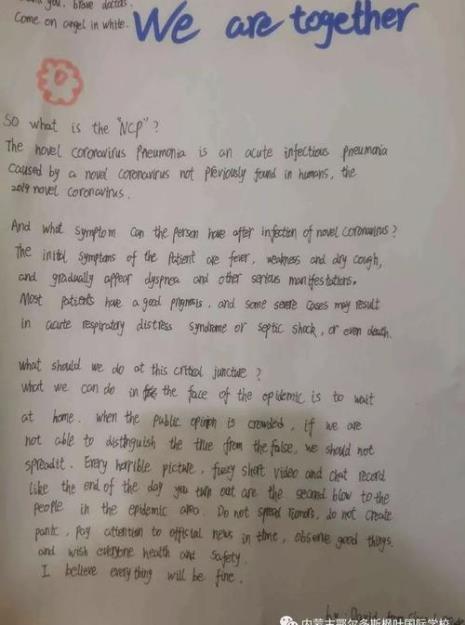 you, brave doctors.
Come on angel in white.
We are together
So what is the "NCP"?
The novel coronavirus Pneumonia is an acute infectious pneumonia
caused by a novel coronavirus not previously found in humans, the
2019 novel coronavirus.
And what symptom can the person have after infection of novel coronavirus?
The initil symptoms of the patient are fever, weakness and dry cough,
and gradually appear dyspnea and other serious manifestations.
Most patients have a good prignosis, and some severe cases may result
in acute respiratory distress syndrome or septic shock, or even death.
what should we do at this critical juncture?
what we can do in the face of the epidemic is to wait
at home. when the public opinion is crowded, if we are
not able to distinguish the true from the false, we should not
spreadit. Every horrible picture, fuzzy short video and chat record
like the end of the day you turn out are the second blow to the
people in the epidemic area. Do not spread rumors, do not create
panic, pay attention to official news in time, observe good things.
and wish everyone health and safety.
I believe everything will be fine.
by: David
内蒙古鄂尔多斯枫叶国际学校